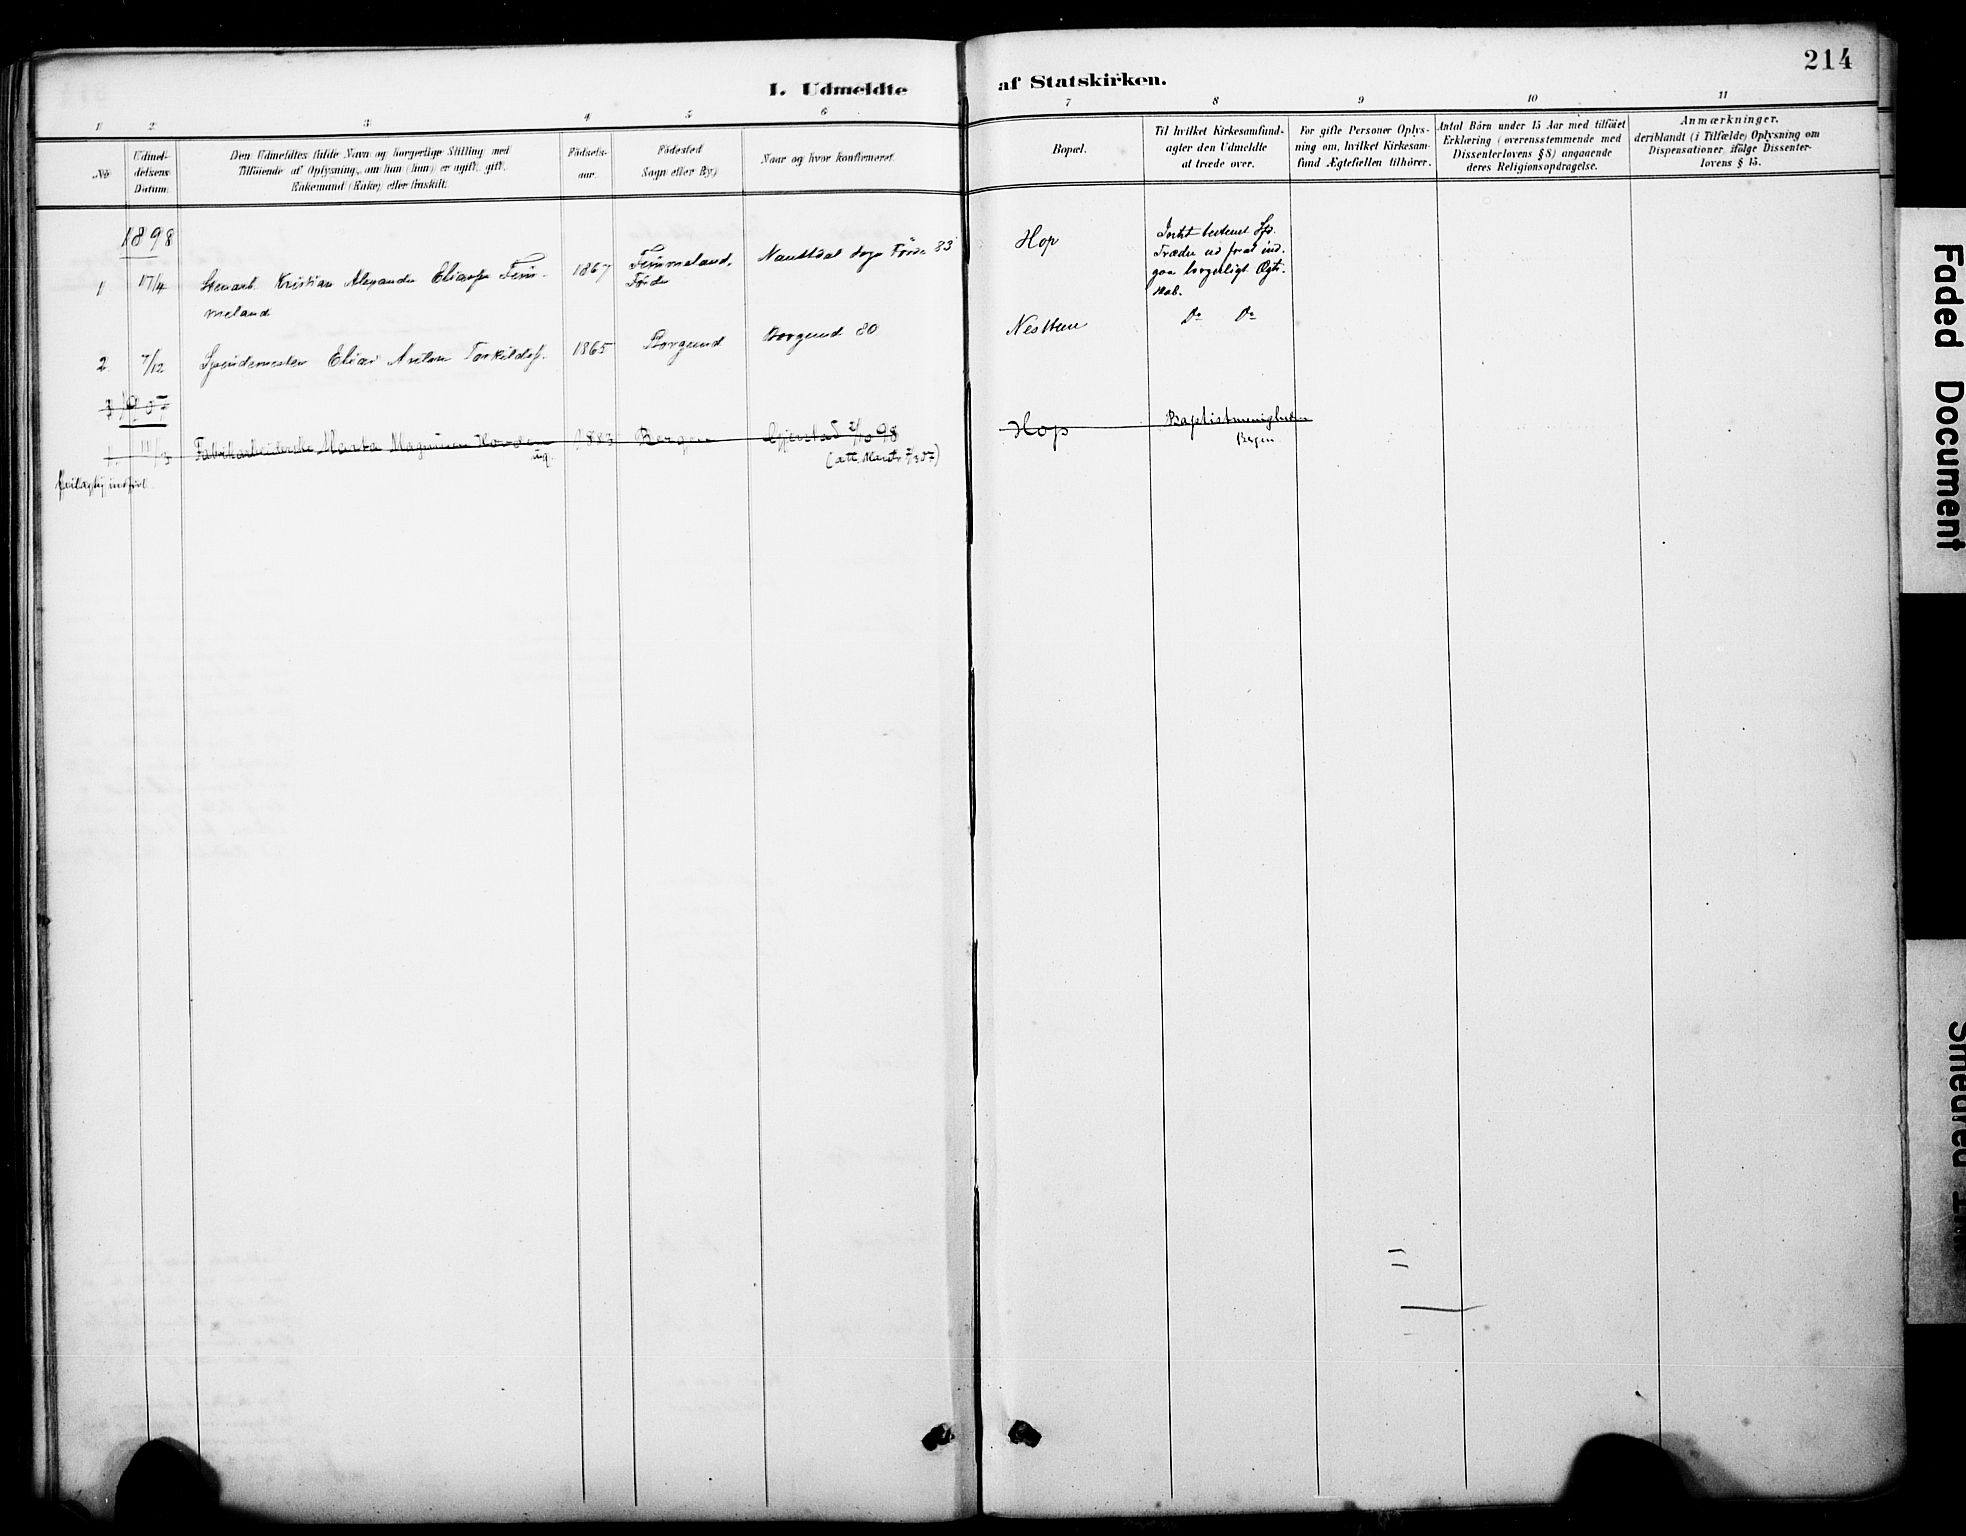 214
I. Udmeldte af Statskirken.
1 2 3 4 5 6 7 8 9 10 11
No
Udmel-
delsens
Datum.
Den Udmeldtes fulde Navn og borgerlige Stilling med
Tilföiende af Oplysning, om han (hun) er ugift, gift,
Enkemand (Enke) eller fraskilt.
Födsels-
aar.
Födested
Sogn eller By)
Naar og hvor konfirmeret.
Bopæl.
Til hvilket Kirkesamfund
agter den Udmeldte
at træde over.
For gifte Personer Oplys-
ning om, hvilket Kirkesam-
fund Ægtefællen tilhörer.
Antal Börn under 15 Aar med tilföiet
Erklæring (overensstemmende med
Dissenterlovens § 8) angaaende
deres Religionsopdragelse.
Anmærkninger,
deriblandt (i Tilfælde) Oplysning om
Dispensationer ifölge Dissenter-
lovens § 15.
1898
1 17/4 Kristian Alexander 1867 Förde 83 Hop
meland
Træder ud for at ind-
gaa borgerligt Ægte-
skab.
2 7/12 Elias Torkilds. 1865 Borgund Borgund 80 Do Do
1907
1. 11/3 Fabrikarbeiderske Marta Magnusen 1883 Bergen Gjerstad 2/10 98 Hop Baptistmenigheden
ug.
Bergen
Faded Document